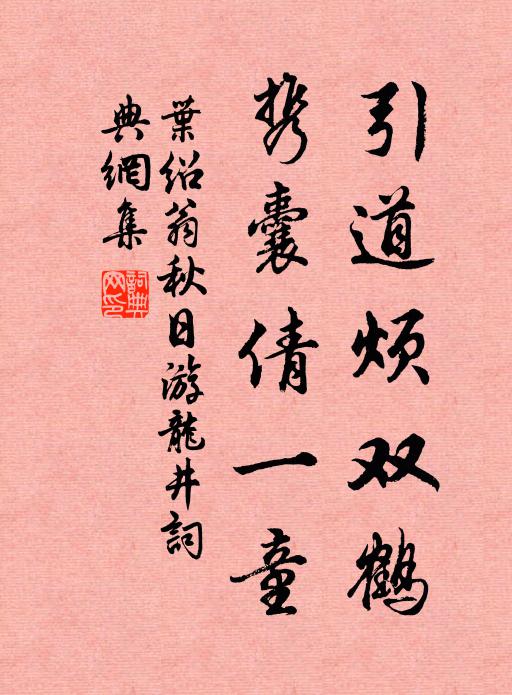 引道烦双鹤
携囊倩一童
葉紹翁秋日游龍井詞
典網集
詞典网印